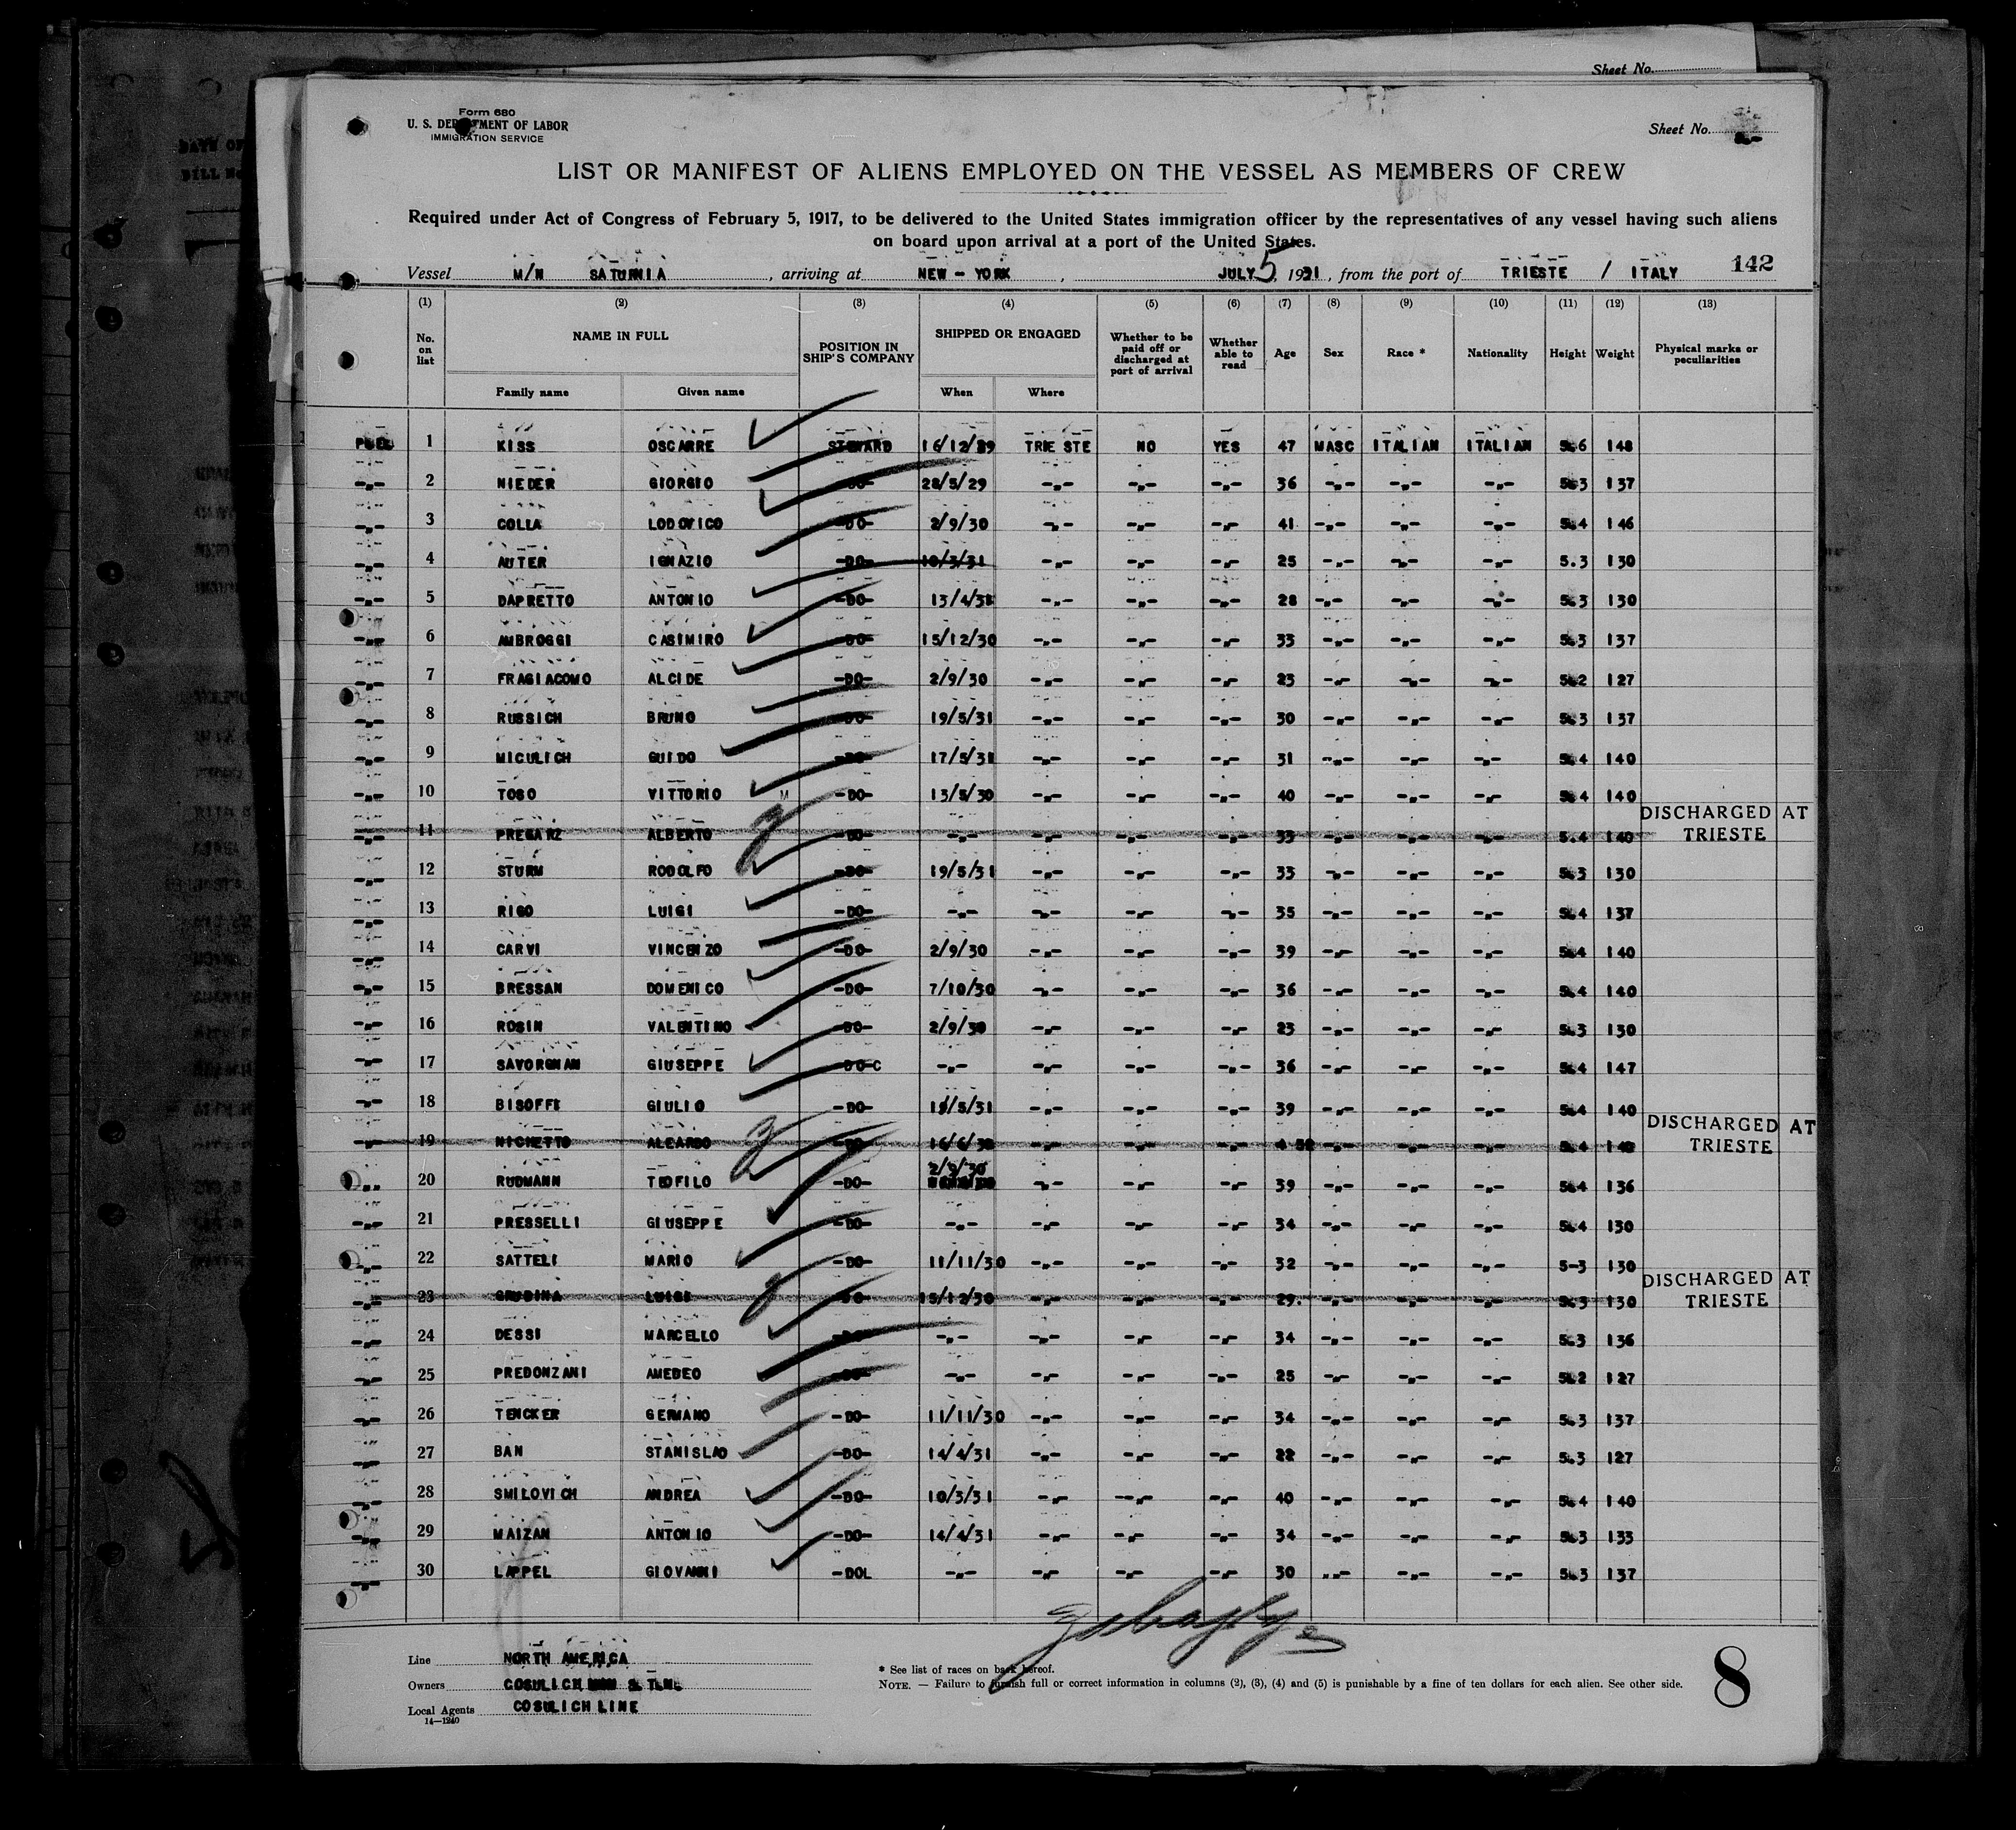 Sheet No.
Form 680
U. S. DEPARTMENT OF LABOR
IMMIGRATION SERVICE
Sheet No.
LIST OR MANIFEST OF ALIENS EMPLOYED ON THE VESSEL AS MEMBERS OF CREW
Required under Act of Congress of February 5, 1917, to be delivered to the United States immigration officer by the representatives of any vessel having such aliens
on board upon arrival at a port of the United States.
Vessel M/N SATURNIA, arriving at NEW-YORK, JULY 5, 1931, from the port of TRIESTE / ITALY 142
(1) (2) (3) (4) (5) (6) (7) (8) (9) (10) (11) (12) (13)
No. on list NAME IN FULL POSITION IN SHIP'S COMPANY SHIPPED OR ENGAGED Whether to be paid off or discharged at port of arrival Whether able to read Age Sex Race * Nationality Height Weight Physical marks or peculiarities
Family name Given name When Where
1 KISS OSCARRE STEWARD 16/12/29 TRIESTE NO YES 47 MASC ITALIAN ITALIAN 5.6 148
-"- 2 NIEDER GIORGIO -DO- 28/5/29 -"- -"- -"- 36 -"- -"- -"- 5.3 137
-"- 3 COLLA LODOVICO -DO- 2/9/30 -"- -"- -"- 41 -"- -"- -"- 5.4 146
-"- 4 AUTER IGNAZIO -DO- 10/3/31 -"- -"- -"- 25 -"- -"- -"- 5.3 130
-"- 5 DAPRETTO ANTONIO -DO- 13/4/31 -"- -"- -"- 28 -"- -"- -"- 5.3 130
-"- 6 AMBROGGI CASIMIRO -DO- 15/12/30 -"- -"- -"- 33 -"- -"- -"- 5.3 137
-"- 7 FRAGIACOMO ALCIDE -DO- 2/9/30 -"- -"- -"- 23 -"- -"- -"- 5.2 127
-"- 8 RUSSICH BRUNO -DO- 19/5/31 -"- -"- -"- 30 -"- -"- -"- 5.3 137
-"- 9 MICULICH GUIDO -DO- 17/5/31 -"- -"- -"- 31 -"- -"- -"- 5.4 140
-"- 10 TOSO VITTORIO M -DO- 13/5/30 -"- -"- -"- 40 -"- -"- -"- 5.4 140
-"- 11 PREGARZ ALBERTO -DO- -"- -"- -"- -"- 33 -"- -"- -"- 5.4 140 DISCHARGED AT TRIESTE
-"- 12 STURM RODOLFO -DO- 19/5/31 -"- -"- -"- 33 -"- -"- -"- 5.3 130
-"- 13 RIGO LUIGI -DO- -"- -"- -"- -"- 35 -"- -"- -"- 5.4 137
-"- 14 CARVI VINCENZO -DO- 2/9/30 -"- -"- -"- 39 -"- -"- -"- 5.4 140
-"- 15 BRESSAN DOMENICO -DO- 7/10/30 -"- -"- -"- 36 -"- -"- -"- 5.4 140
-"- 16 ROSIN VALENTINO -DO- 2/9/30 -"- -"- -"- 23 -"- -"- -"- 5.3 130
-"- 17 SAVORGNAN GIUSEPPE -DO-C -"- -"- -"- -"- 36 -"- -"- -"- 5.4 147
-"- 18 BISOFFI GIULIO -DO- 19/5/31 -"- -"- -"- 39 -"- -"- -"- 5.4 140
-"- 19 NICHETTO ALEARDO -DO- 16/6/30 -"- -"- -"- -"- -"- -"- 5.4 140 DISCHARGED AT TRIESTE
-"- 20 RUDMANN TEOFILO -DO- 2/9/30 -"- -"- -"- 39 -"- -"- -"- 5.4 136
-"- 21 PRESSELLI GIUSEPPE -DO- -"- -"- -"- -"- 34 -"- -"- -"- 5.4 130
-"- 22 SATTELI MARIO -DO- 11/11/30 -"- -"- -"- 32 -"- -"- -"- 5-3 130
-"- 23 GRUDINA LUIGI -DO- 15/12/30 -"- -"- -"- 29. -"- -"- -"- 5.3 130 DISCHARGED AT TRIESTE
-"- 24 DESSI MARCELLO -DO- -"- -"- -"- -"- 34 -"- -"- -"- 5.3 136
-"- 25 PREDONZANI AMEDEO -DO- -"- -"- -"- -"- 25 -"- -"- -"- 5.2 127
-"- 26 TENCKER GERMANO -DO- 11/11/30 -"- -"- -"- 34 -"- -"- -"- 5.3 137
-"- 27 BAN STANISLAO -DO- 14/4/31 -"- -"- -"- 22 -"- -"- -"- 5.3 127
-"- 28 SMILOVICH ANDREA -DO- 10/3/31 -"- -"- -"- 40 -"- -"- -"- 5.4 140
-"- 29 MAIZAN ANTONIO -DO- 14/4/31 -"- -"- -"- 34 -"- -"- -"- 5.3 133
-"- 30 LAPPEL GIOVANNI -DOL -"- -"- -"- -"- 30 -"- -"- -"- 5.3 137
Line NORTH AMERICA
Owners COSULICH
Local Agents COSULICH LINE
14—1240
* See list of races on back hereof.
NOTE. — Failure to furnish full or correct information in columns (2), (3), (4) and (5) is punishable by a fine of ten dollars for each alien. See other side.
8